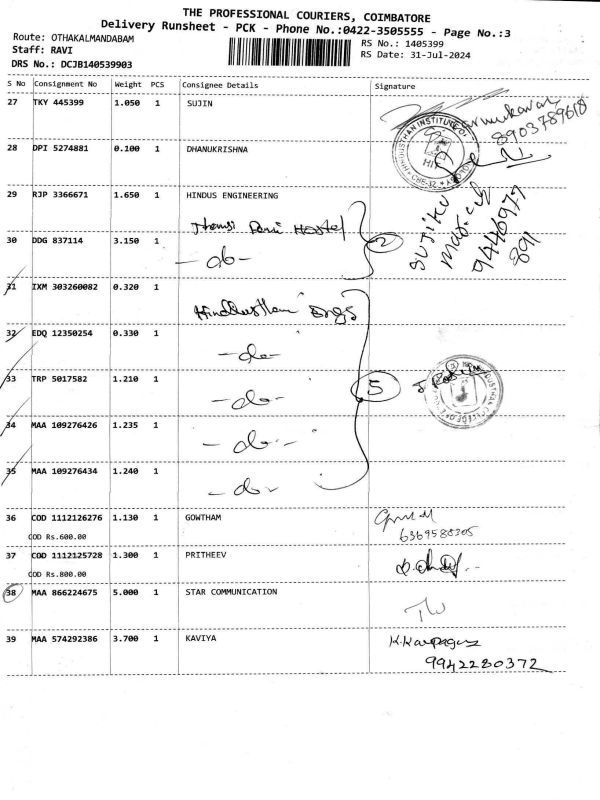 THE PROFESSIONAL COURIERS, COIMBATORE
Delivery Runsheet - PCK - Phone No.:0422-3505555 - Page No.:3
Route: OTHAKALMANDABAM
RS No.: 1405399
Staff: RAVI
RS Date: 31-Jul-2024
DRS No.: DCJB140539903
S No Consignment No Weight PCS Consignee Details Signature
27 TKY 445399 1.050 1 SUJIN
8903789618
28 DPI 5274881 0.100 1 DHANUKRISHNA
HINDUSTHAN INSTITUTE OF
29 RJP 3366671 1.650 1 HINDUS ENGINEERING
Hostel
2
30 DDG 837114 3.150 1
- do -
9446977
891
31 IXM 303260082 0.320 1
32 EDQ 12350254 0.330 1
- do -
33 TRP 5017582 1.210 1
- do -
5
34 MAA 109276426 1.235 1
- do -
35 MAA 109276434 1.240 1
- do -
36 COD 1112126276 1.130 1 GOWTHAM
COD Rs.600.00
6369588305
37 COD 1112125728 1.300 1 PRITHEEV
COD Rs.800.00
38 MAA 866224675 5.000 1 STAR COMMUNICATION
39 MAA 574292386 3.700 1 KAVIYA
9942280372